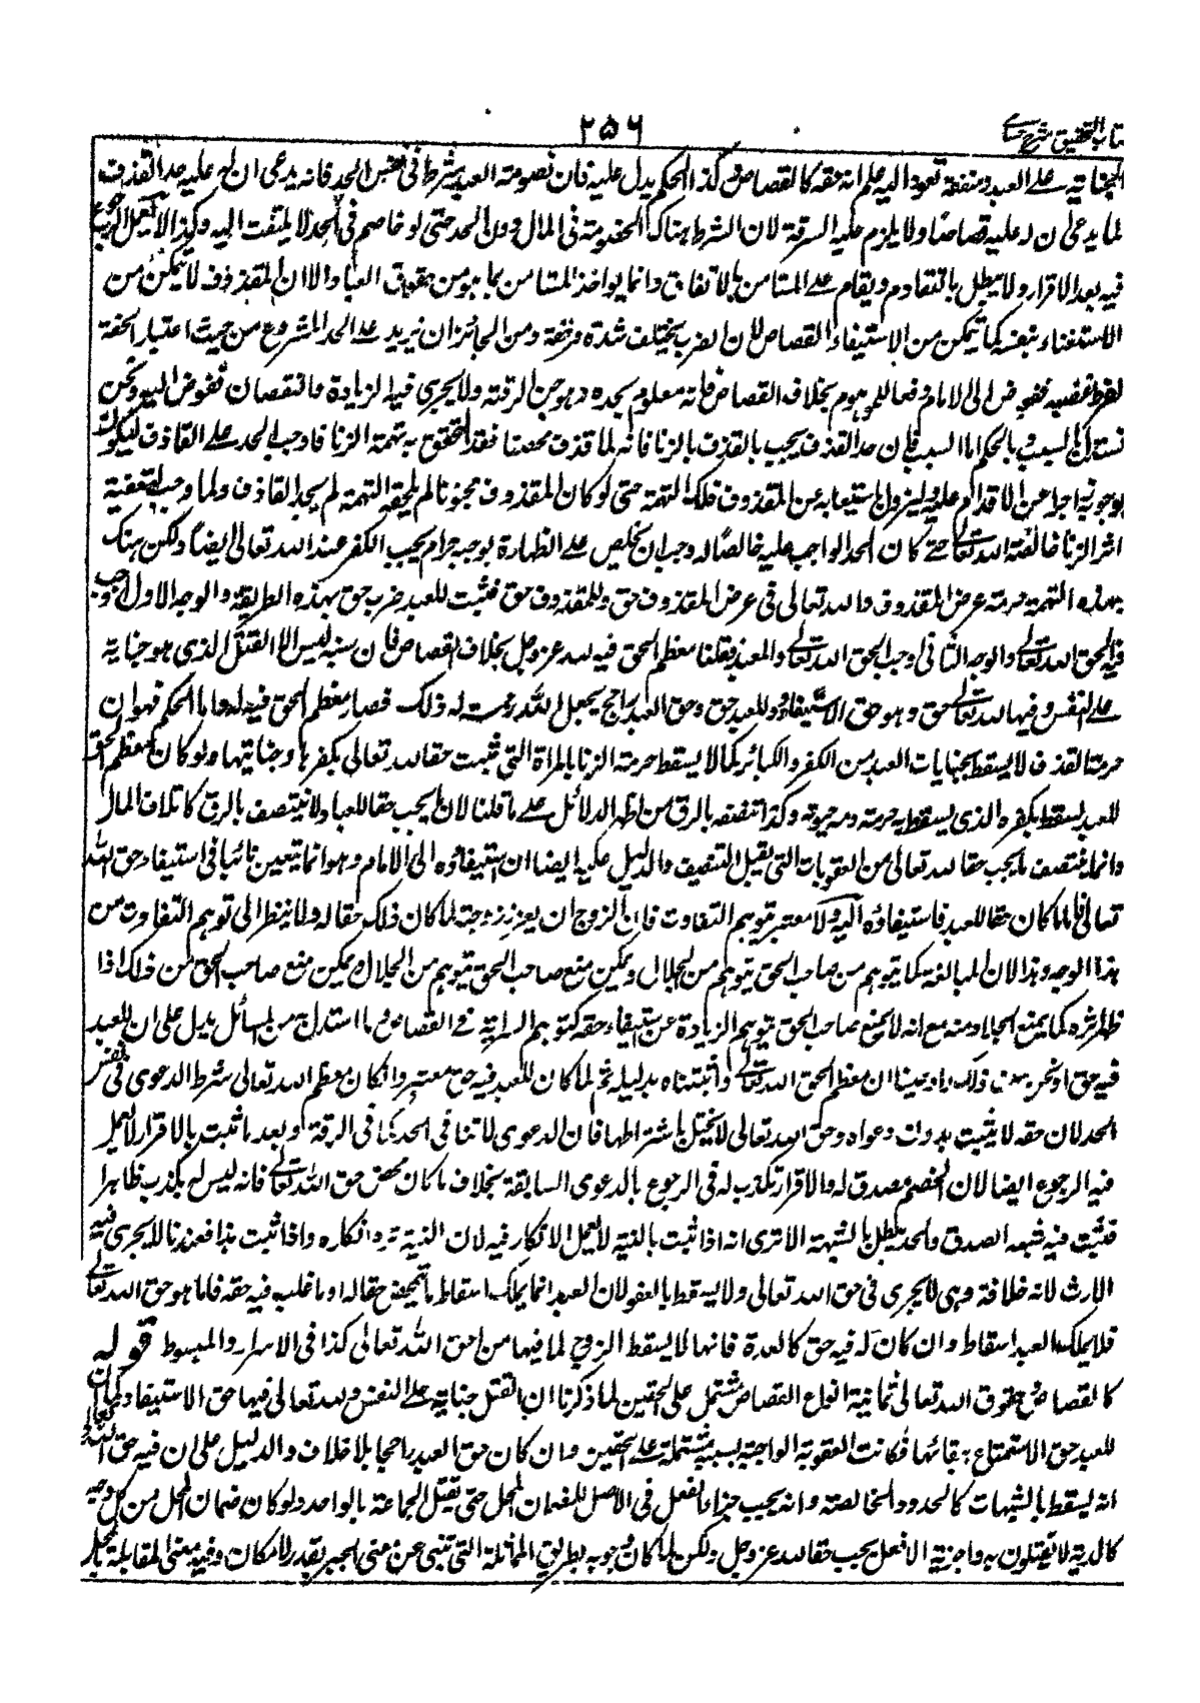 ٢٥٦
كتاب التحقيق شرح حسامي
الجناية على العبد ومنفعة تعود اليه علم انه حقه كالقصاص وكذا الحكم يدل عليه فان خصومة العبد شرط في نفس الحد فانه يدعي ان لي عليه حد القذف
كما يدعي ان له عليه قصاصا ولا يلزم عليه السرقة لان الشرط هناك الخصومة في المال دون الحد حتى لو خاصم في الحد لا يلتفت اليه وكذا لا يعمل الرجوع
فيه بعد الاقرار ولا يبطل بالتقادم ويقام على المستامن بالاتفاق وانما يواخذ المستامن بما هو من حقوق العباد الا ان المقذوف لا يتمكن من
الاستيفاء بنفسه كما يتمكن من الاستيفاء القصاص لان الضرب يختلف شدة وخفة ومن الجائز ان يزيد على الحد المشروع من حيث اعتبار الخفة
لفرط غضبه ففوض الى الامام دفعا للموهوم بخلاف القصاص فانه معلوم بحده وهو جز الرقبة ولا يجري فيه الزيادة والنقصان ففوض اليه ونحن
نستدل بالسبب وبالحكم اما السبب فلان حد القذف يجب بالقذف بالزنا فانه لما قذف محصنا فقد الحق به تهمة الزنا فاوجب الحد على القاذف ليكون
بوجوبه زاجرا عن الاقدام عليه وليزول باستيفائه عن المقذوف تلك التهمة حتى لو كان المقذوف مجنونا لم يلحقه التهمة لم يحد القاذف ولما وجب لتعفية
اثر الزنا خالصة لله تعالى حتى كان الحد الواجب عليه خالصا له وجب ان يخلص على الطهارة بوجه حرام يجب الكفر عند الله تعالى ايضا ولكن هتك
بهذه التهمة حرمة عرض المقذوف ولله تعالى في عرض المقذوف حق وللمقذوف حق فثبت للعبد ضرب حق بهذه الطريقة والوجه الاول اوجب
فيه الحق لله تعالى والوجه الثاني اوجب الحق لله تعالى وللعبد فقلنا معظم الحق فيه لله عز وجل بخلاف القصاص فان سببه ليس الا القتل الذي هو جناية
على النفس وفيها لله تعالى حق وهو حق الاستيفاء وللعبد حق وحق العبد راجح بجعل الله عزت له ذلك فصار معظم الحق فيه له واما الحكم فهو ان
حرمة القذف لا يسقط بجنايات العبد من الكفر والكبائر كما لا يسقط حرمة الزنا بالمراة التي ثبت حقا لله تعالى بكفرها وجنايتها ولو كان معظم الحق
للعبد يسقط بكفره الذي يسقط به حرمة دمه حيوته وكذا تنصفه بالرق من اظهر الدلائل على ما قلنا لان ما يجب حقا للعباد لا يتنصف بالرق كاتلاف المال
وانما يتنصف ما يجب حقا لله تعالى من العقوبات التي يقبل التنصيف والدليل عليه ايضا ان استيفاؤه الى الامام وهو انما يتعين نائبا في استيفاء حق الله
تعالى فاما ما كان حقا للعبد فاستيفاؤه اليه ولا معتبر بتوهم التفاوت فان للزوج ان يعزر زوجته لما كان ذلك حقا له ولا ينظر الى توهم التفاوت من
هذا الوجه وهذا لان المبالغة كما يتوهم من صاحب الحق يتوهم من الجلاد ويمكن منع صاحب الحق يتوهم من الجلاد ويمكن منع صاحب الحق من ذلك اذا
ظهر اثره كما يمنع الجلاد منه مع انه لا يمنع صاحب الحق بتوهم الزيادة عن استيفاء حقه كتوهم السراية في القصاص وما استدل من المسائل يدل على ان للعبد
فيه حق او نحن نقول ذلك وادعينا ان معظم الحق لله تعالى واثبتناه بدليله ثم لما كان للعبد فيه حق معتبر وان كان معظم لله تعالى شرط الدعوى في نفس
الحد لان حقه لا يثبت بدون دعواه وحق الله تعالى لا يختل باشتراطها فان الدعوى لا تنافي الحد كما في السرقة وبعد ما ثبت بالاقرار لا يعمل
فيه الرجوع ايضا لان الخصم مصدق له والاقرار مكذب له في الرجوع بالدعوى السابقة بخلاف ما كان محض حق الله تعالى فانه ليس له مكذب ظاهرا
فثبت فيه شبهة الصدق والحد يبطل بالشبهة الا ترى انه اذا ثبت بالبينة لا يعمل الانكار فيه لان البينة ترد انكاره واذا ثبت هذا فعندنا لا يجري فيه
الارث لانه خلافة وهي لا يجري في حق الله تعالى ولا يسقط بالعفو لان العبد انما يملك اسقاط ما تمحض حقا له او ما غلب فيه حقه فاما ما هو حق الله تعالى
فلا يملك العبد اسقاطه وان كان له فيه حق كالعدة فانها لا يسقط الزوج لما فيها من حق الله تعالى كذا في الاسرار والمبسوط قوله
كالقصاص حقوق الله تعالى ثمانية انواع القصاص مشتمل على الحقين لما ذكرنا ان القتل جناية على النفس ولله تعالى فيها حق الاستيفاء وكان
للعبد حق الاستمتاع ببقائها فكانت العقوبة الواجبة بسببه مشتملة على الحقين وان كان حق العبد راجحا بلا خلاف والدليل على ان فيه حق الله تعالى
انه يسقط بالشبهات كالحدود الخالصة وانه يجب جزاء الفعل في الاصل لا ضمان المحل حتى يقتل الجماعة بالواحد ولو كان ضمان المحل من كل وجه
كالدية لا يقتلون به واجزية الافعال يجب حقا لله عز وجل ولكن لما كان وجوبه بطريق المماثلة التي تنبئ عن معنى الجبر بقدر الامكان وفيه معنى المقابلة بالمحل